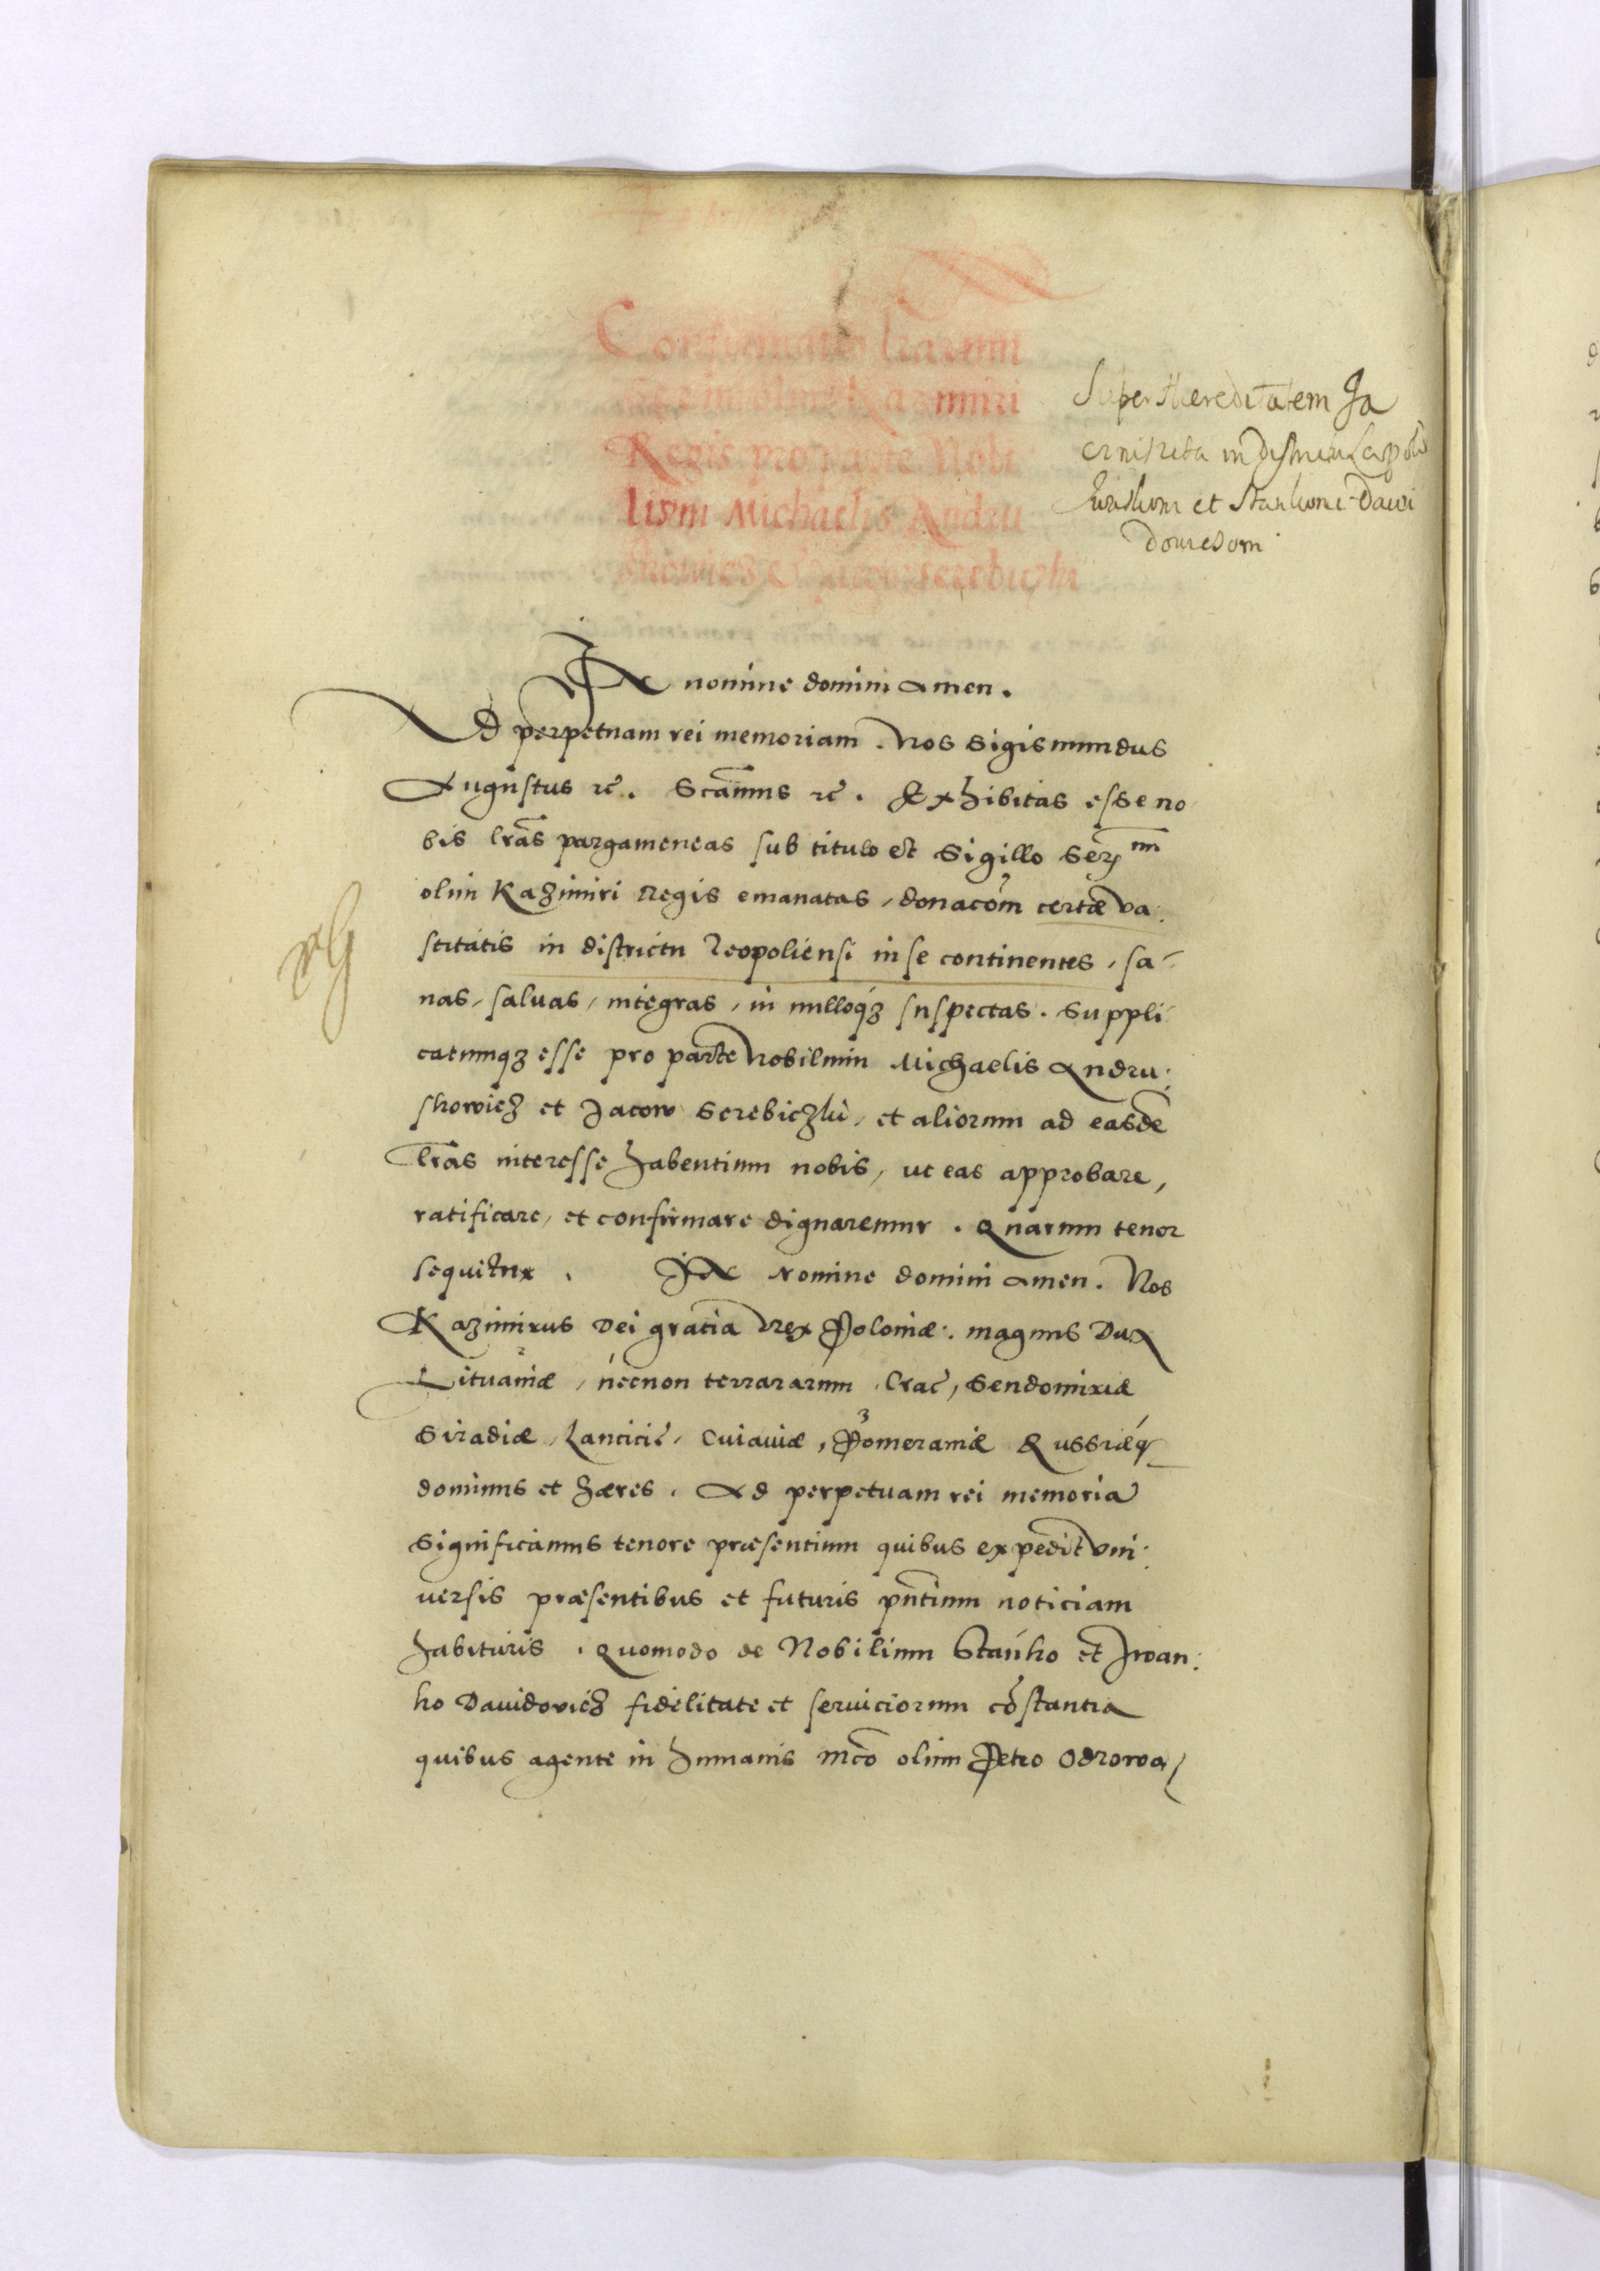 Confirmatio lrarum
olim Kazimiri
Regis pro parte Nobi
lium Michaelis Andru
Super Hereditatem Ja
in districtu
et Stankoni Dawi
In nomine domini amen.
Ad perpetuam rei memoriam. Nos Sigismundus
Augustus &c. Scamus &c. Exhibitas esse no
bis lras pargameneas sub titulo et Sigillo Ser^mi
olim Kazimiri Regis emanatas, donacom certæ va:
stitatis in districtu Leopoliensi in se continentes, sa-
nas, saluas, integras, in nulloqz suspectas. Suppli
catumqz esse pro parte Nobilium Michaelis Andru:
skowicz et Jacow Serebiczki, et aliorum ad easde
lras interesse habentium nobis, ut eas approbare,
ratificare, et confirmare dignaremur. Quarum tenor
sequitur. In Nomine domini amen. Nos
Kazimirus Dei gratia Rex Poloniæ. magnus Dux
Lituaniæ, necnon terrararum Crac, Sendomiriæ
Siradiæ, Lancicie, Cuiauiæ, Pomeraniæ Russiæq
dominus et hæres. Ad perpetuam rei memoria
Significamus tenore præsentium quibus expedit vni:
uersis præsentibus et futuris pntium noticiam
habituris. Quomodo de Nobilium Stanko et Iwan:
ko Dauidowicz fidelitate et seruiciorum costantia
quibus agente in humanis mco olim Petro Odrowa